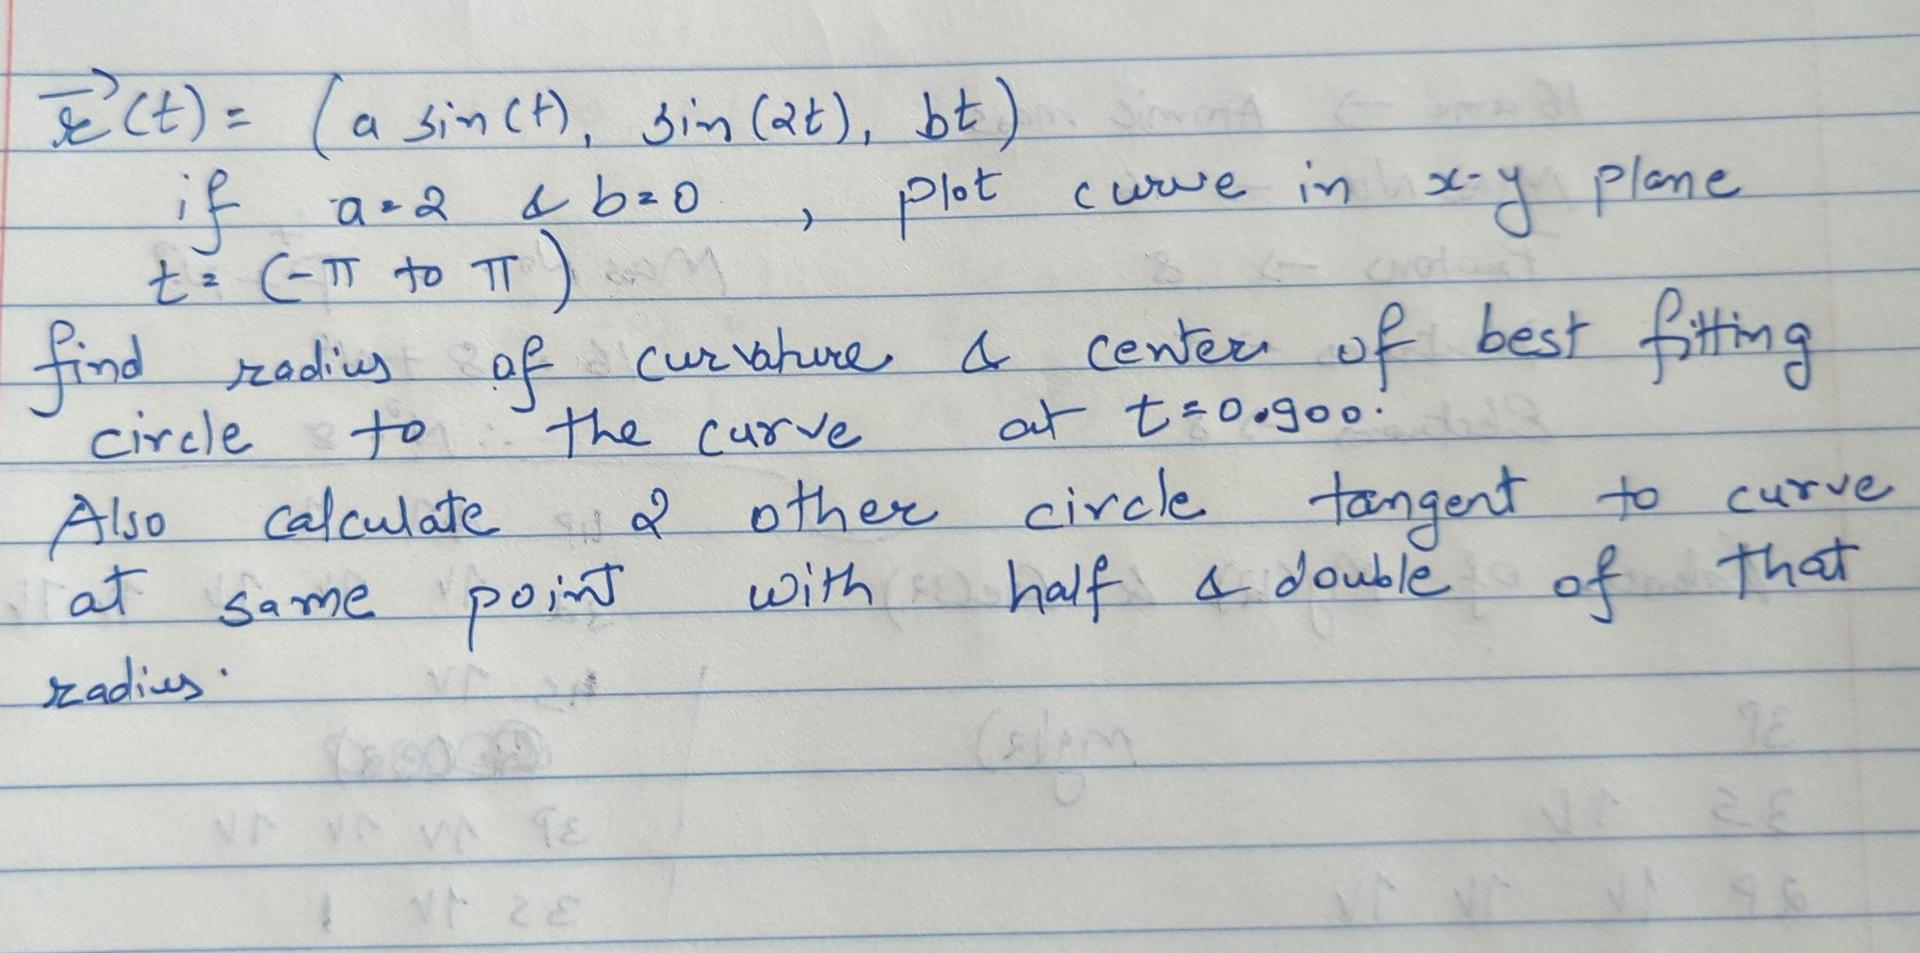 r⃗(t) = (a sin(t), sin(2t), bt)
if a=2 & b=0, plot curve in x-y plane
t = (-π to π)
find radius of curvature & center of best fitting
circle to the curve at t=0.900.
Also calculate 2 other circle tangent to curve
at same point with half & double of that
radius.